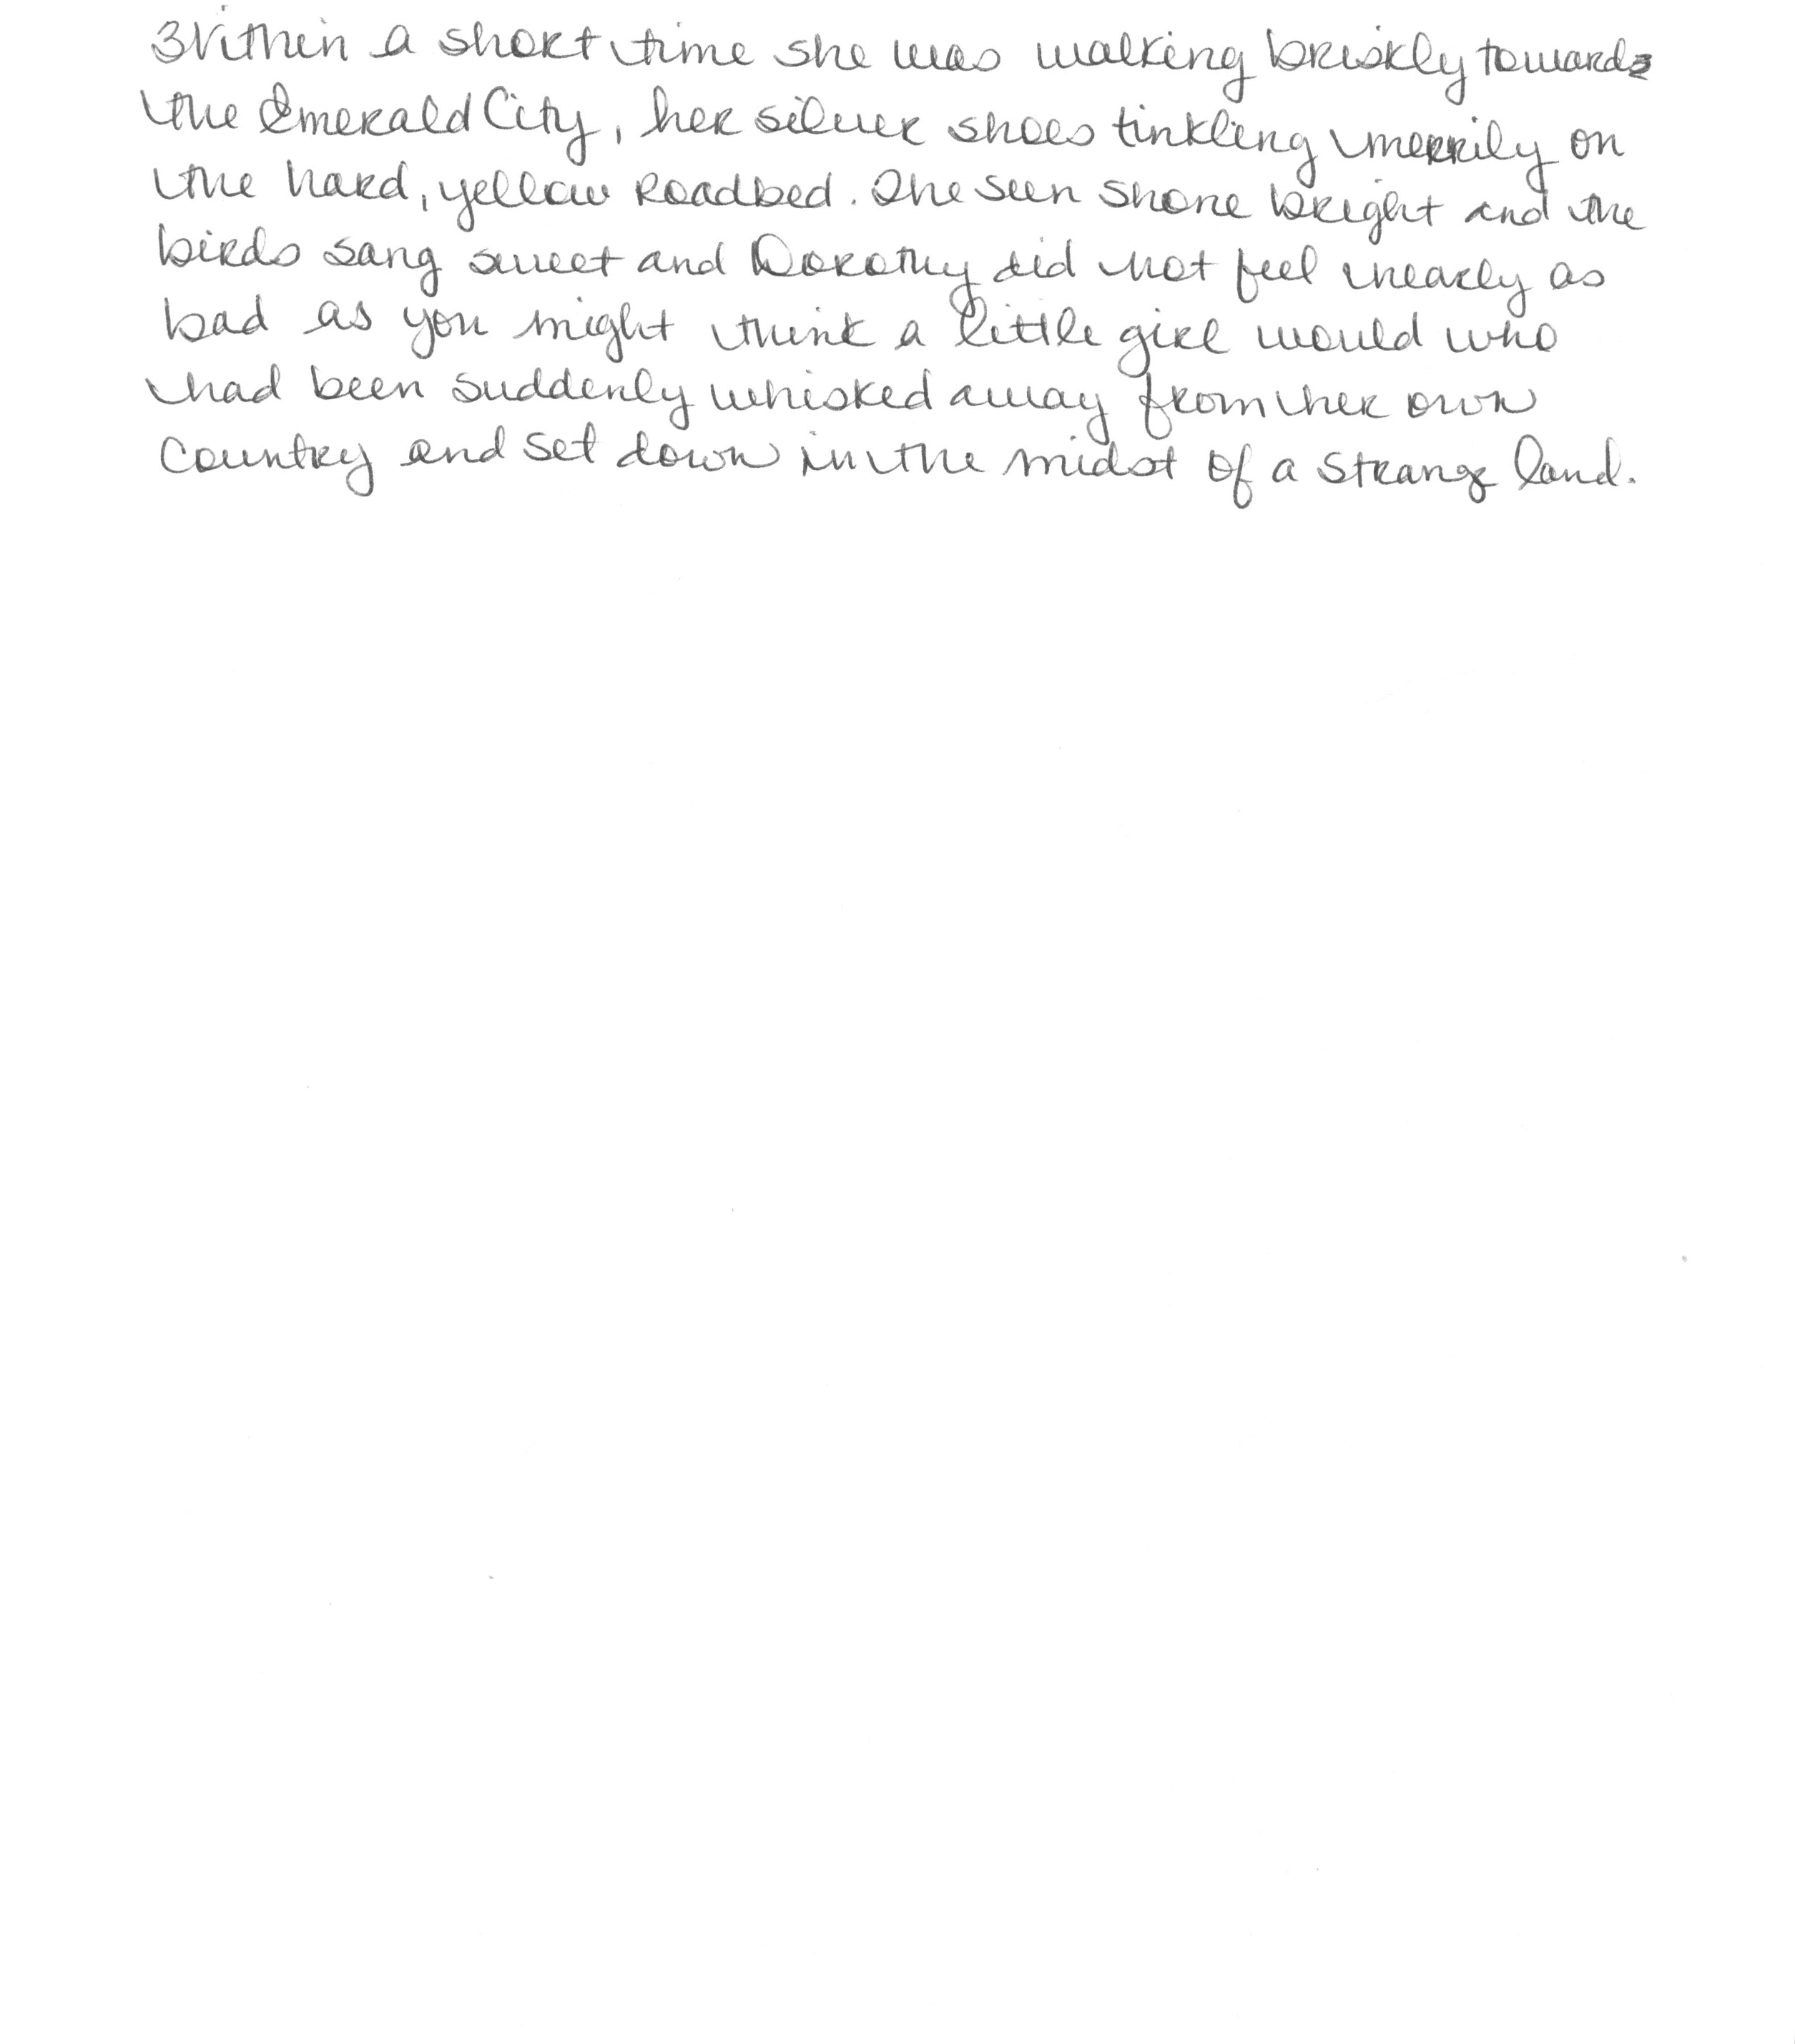 Within a short time she was walking briskly towards
the Emerald City, her silver shoes tinkling merrily on
the hard, yellow roadbed. The sun shone bright and the
birds sang sweet and Dorothy did not feel nearly as
bad as you might think a little girl would who
had been suddenly whisked away from her own
country and set down in the midst of a strange land.